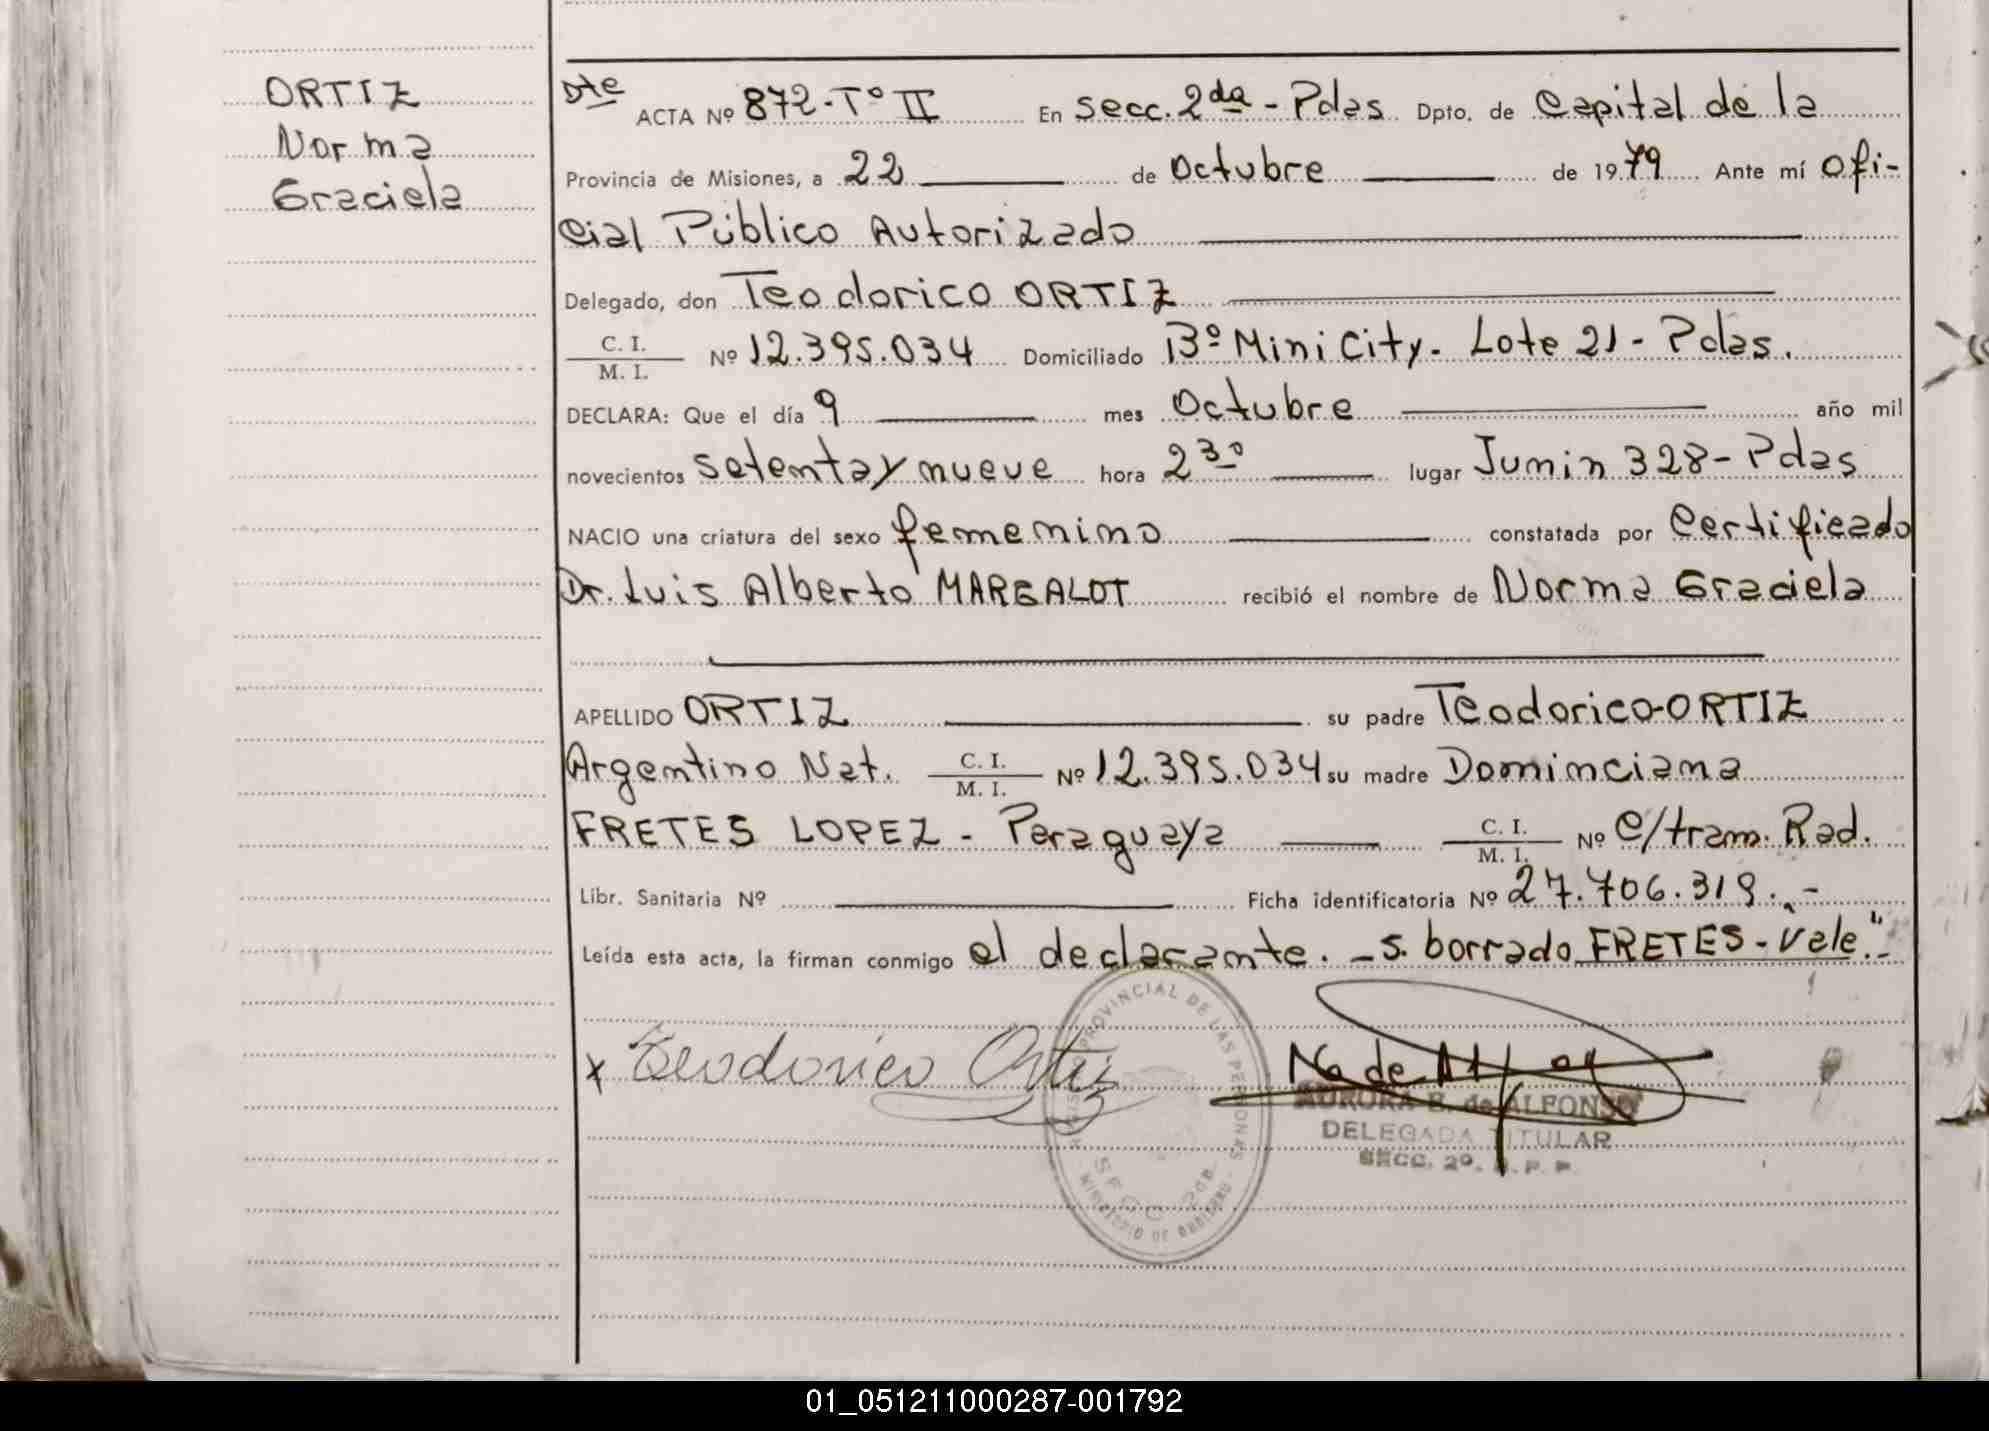 ORTIZ
Norma
Graciela
Dte ACTA Nº 872-Tº II En secc. 2da - Pdas Dpto. de Capital de la
Provincia de Misiones, a 22 de Octubre de 1979 Ante mí Ofi-
cial Público Autorizado
Delegado, don Teodorico ORTIZ
C. I.
M. I. Nº 12.395.034 Domiciliado Bº Mini City. Lote 21 - Pdas.
DECLARA: Que el día 9 mes Octubre año mil
novecientos setenta y nueve hora 2 30 lugar Junin 328 - Pdas
NACIO una criatura del sexo femenino constatada por Certificado
Dr. Luis Alberto MARGALOT recibió el nombre de Norma Graciela
APELLIDO ORTIZ su padre Teodorico-ORTIZ
Argentino Nat. C. I. M. I. Nº 12.395.034 su madre Dominciana
FRETES LOPEZ - Paraguaya C. I. M. I. Nº C/tram. Rad.
Libr. Sanitaria Nº Ficha identificatoria Nº 27.706.319.-
Leída esta acta, la firman conmigo el declarante. - S. borrado FRETES - Vale."-
x Teodorico Ortiz
AURORA B. de ALFONSO
DELEGADA TITULAR
SECC. 2º. R. P. P.
PROVINCIAL DE LAS PERSONAS
SECC. 2da
MINISTERIO DE GOBIERNO
01_051211000287-001792